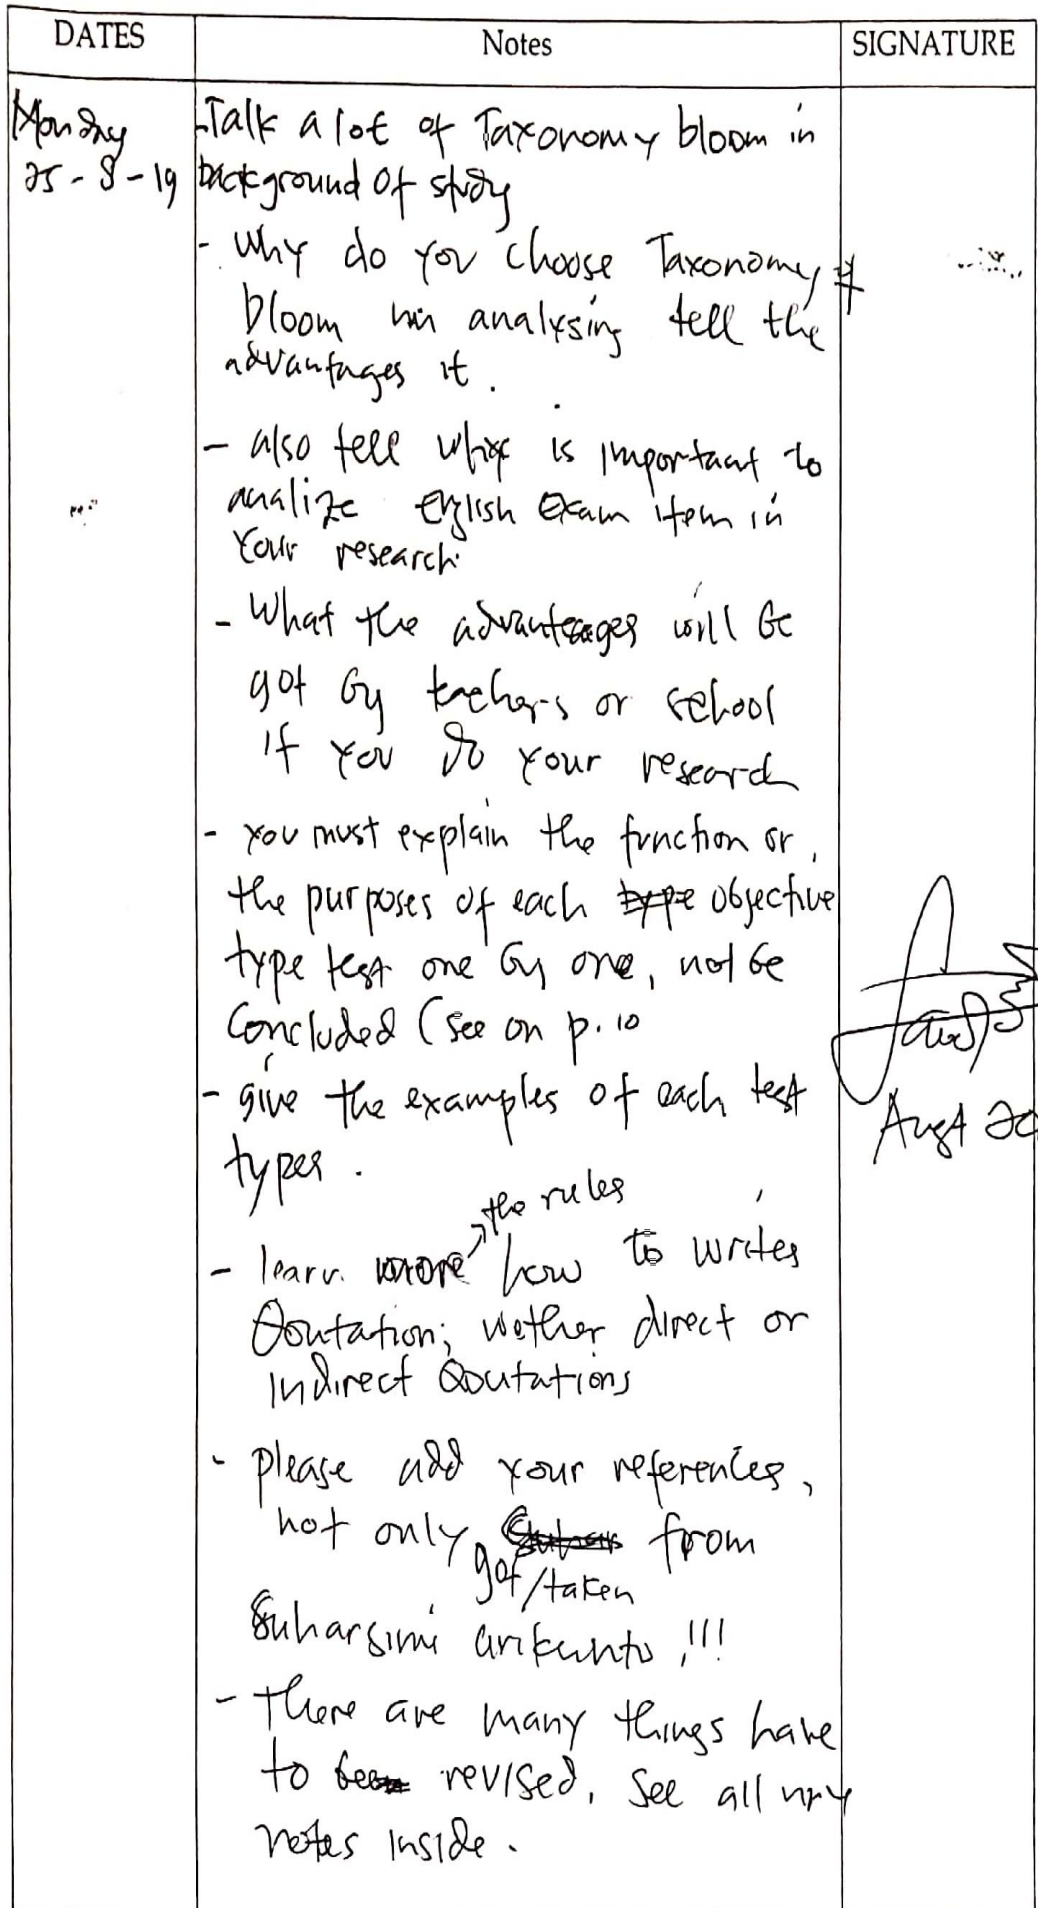 DATES Notes SIGNATURE
Monday -Talk a lot of Taxonomy bloom in
25-8-19 background of study
- why do you choose Taxonomy of
bloom in analysing tell the
advantages it.
- also tell why is important to
analize english exam item in
your research
- What the advantages will be
got by teachers or school
if you do your research
- you must explain the function or
the purposes of each objective
type test one by one, not be
concluded (see on p. 10
- give the examples of each test
types.
the rules
- learn more how to writes
Qoutation; wether direct or
indirect Qoutations
- please add your references,
not only from
got/taken
Suharsimi arikunto,!!!
- there are many things have
to revised. See all my
notes inside.
August